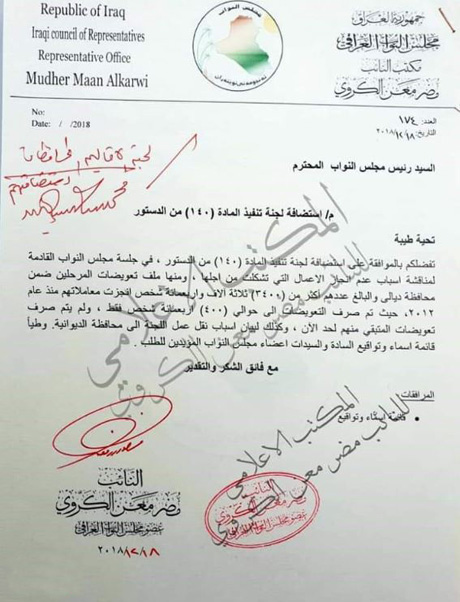 Republic of Iraq
Iraqi council of Representatives
Representative Office
Mudher Maan Alkarwi
مجلس النواب
جمهورية العراق
مجلس النواب العراقي
مكتب النائب
مضر معن الكروي
No:
Date: / /2018
العدد: ١٧٤
التاريخ: ٢٠١٨/٢/٨
لجنة الاقاليم والمحافظات
السيد رئيس مجلس النواب المحترم
م/ استضافة لجنة تنفيذ المادة (١٤٠) من الدستور
تحية طيبة
تفضلكم بالموافقة على استضافة لجنة تنفيذ المادة (١٤٠) من الدستور ، في جلسة مجلس النواب القادمة
لمناقشة اسباب عدم انجاز الاعمال التي تشكلت من اجلها ، ومنها ملف تعويضات المرحلين ضمن
محافظة ديالى والبالغ عددهم اكثر من (٣٤٠٠) ثلاثة الاف واربعمائة شخص انجزت معاملاتهم منذ عام
٢٠١٢، حيث تم صرف التعويضات الى حوالي (٤٠٠) اربعمائة شخص فقط ، ولم يتم صرف
تعويضات المتبقي منهم لحد الآن ، وكذلك لبيان اسباب نقل عمل اللجنة الى محافظة الديوانية. وطياً
قائمة اسماء وتواقيع السادة والسيدات اعضاء مجلس النواب المؤيدين للطلب .
مع فائق الشكر والتقدير
المرافقات
• قائمة اسماء وتواقيع
المكتب الاعلامي
للنائب مضر معن الكروي
المكتب الاعلامي
للنائب مضر معن الكروي
النائب
مضر معن الكروي
عضو مجلس النواب العراقي
٢٠١٨/٢/٨
النائب
مضر معن الكروي
عضو مجلس النواب العراقي